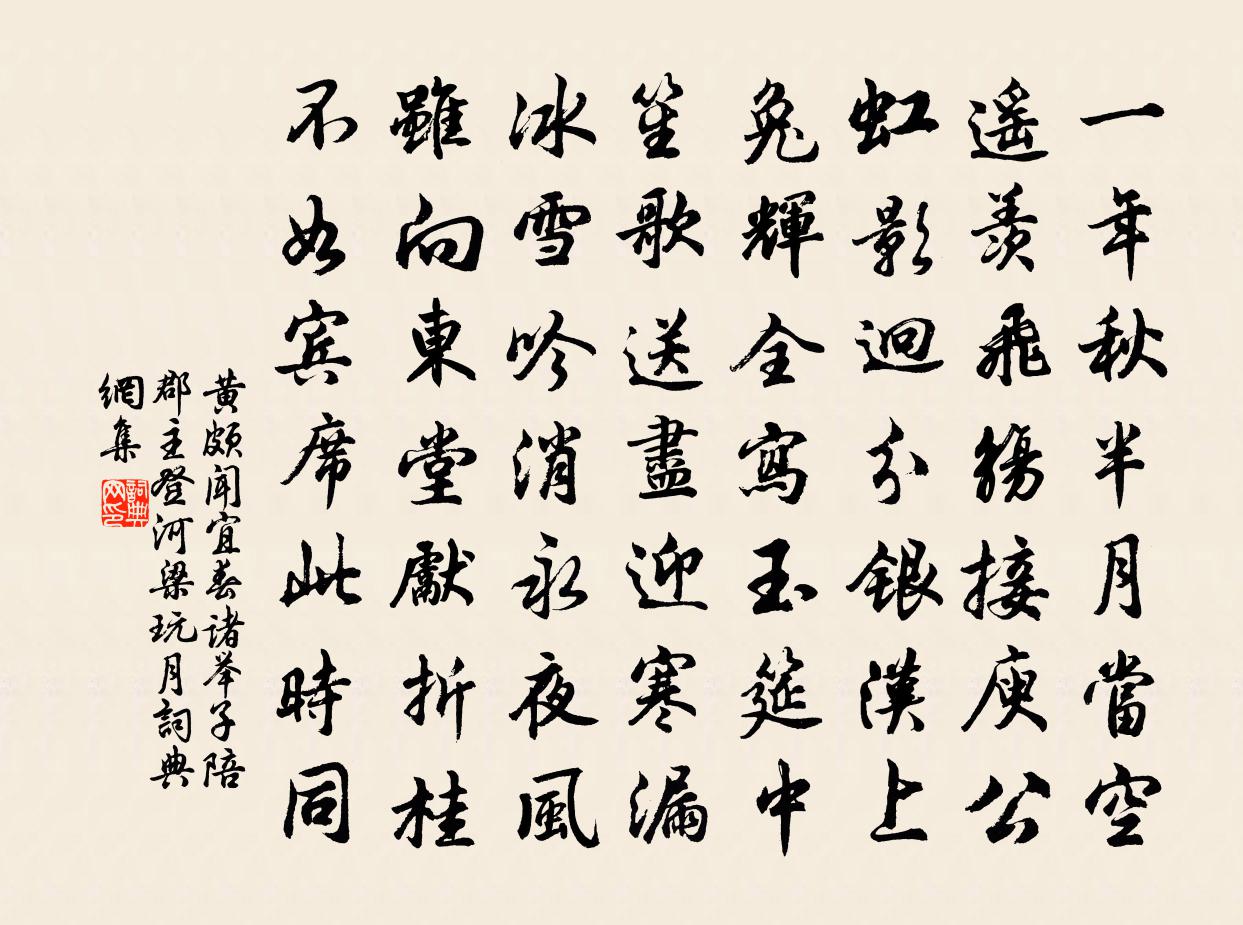 一年秋半月當空
遥羨飛觴接庾公
虹影迥分銀漢上
兔輝全寫玉筵中
笙歌送盡迎寒漏
冰雪吟消永夜風
雖向東堂獻折桂
不如賓席此時同
黄頗聞宜春諸举子陪
郡主登河梁玩月詞典
網集
詞典
网印